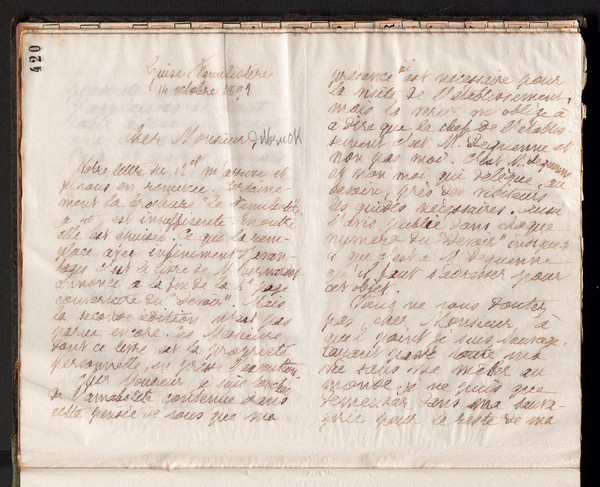 420
Guise Familistère
14 octobre 1891
Cher Monsieur
Votre lettre du 12 ct m'arrive et
je vous en remercie. Certaine-
ment la brochure "le Familistère
à 40 ct" est insuffisante. En outre
elle est épuisée. Ce qui la rem-
place avec infiniment d'avan-
tages c'est le livre de M. Bernardot
annoncé à la fin de la 2e page
couverture du "Devoir". Mais
la seconde édition n'est pas
parue encore. Ces Messieurs
dont ce livre est la propriété
personnelle, en
Cher Monsieur je suis touchée
de l'amabilité contenue dans
cette pensée de vous que ma
présence ici est nécessaire pour
la visite de l'établissement,
mais la vérité m'oblige à
dire que le chef de l'établis-
sement c'est M. Dequenne et
non pas moi. C'est M. Dequenne
et non moi qui délègue, au
besoin, près des visiteurs
les guides nécessaires. Aussi
l'avis publié dans chaque
numéro du "Devoir" indique-t-
il que c'est à M. Dequenne
qu'il faut s'adresser pour
cet objet.
Vous ne vous doutez
pas, cher Monsieur, à
quel point je suis sauvage.
Ayant passé toute ma
vie sans me mêler au
monde je ne puis que
demeurer dans ma sauva-
gerie pour le reste de ma